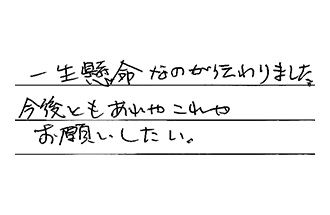 一生懸命なのが伝わりました。
今後ともあれやこれや
お願いしたい。